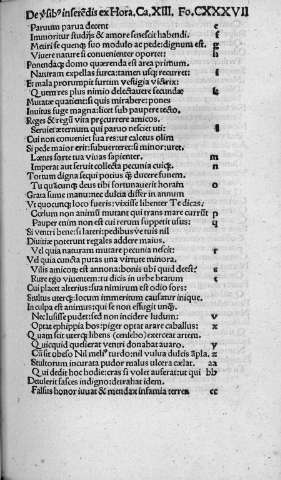 De ṗsib9 inserēdis ex Hora. Ca. XIII. Fo. CXXXVII
Paruum parua decent e
Immoritur studijs & amore senescit habendi. f
Metiri se quemq; suo modulo ac pede: dignum est. g
Viuere naturæ si conuenienter oportet: h
Ponendæq; domo quærenda est area primum.
Naturam expellas furca: tamen usq; recurret: i
Et mala prorumpit furtim uestigia victrix:
Quem res plus nimio delectauere secundæ k
Mutatæ quatient: si quis mirabere: pones
Inuitus fuge magna: licet sub paupere tecto.
Reges & regū vita præcurrere amicos.
Seruiet æternum qui paruo nesciet uti: l
Cui non conueniet sua res: ut calceus olim
Si pede maior erit: subuerteret: si minor: uret.
Lætus sorte tua viuas sapienter, m
Imperat aut seruit collecta pecunia cuiq; n
Tortum digna sequi potius q̄ ducere funem.
Tu quācunq; deus tibi fortunauerit horam o
Grata sume manu: nec dulcia differ in annum
Vt quocunq; loco fueris: vixisse libenter Te dicas:
Cœlum non animū mutant qui trans mare currūt p
Pauper enim non est cui rerum suppetit usus: q
Si ventri bene: si lateri: pedibus ve tuis nil
Diuitiæ poterunt regales addere maius.
Vel quia naturam mutare pecunia nescit: r
Vel quia cuncta putas una virtute minora.
Vilis amicoꝝ est annona: bonis ubi quid deest: s
Rure ego viuentem: tu dicis in urbe beatum t
Cui placet alterius: sua nimirum est odio sors:
Stultus uterq; locum immeritum causatur inique.
In culpa est animus: qui se non effugit unquam.
Nec lusisse pudet: sed non incidere ludum: v
Optat ephippia bos: piger optat arare caballus: x
Quam scit uterq; libens (censebo) exerceat artem.
Quicquid quæsierat ventri donabat auaro. y
Cū sit obeso Nil meli9 turdo: nil vulua dulcis āpla. z
Stultorum incurata pudor malus ulcera cælat. aa
Qui dedit hoc hodie: cras si volet auferat: ut qui bb
Detulerit fasces indigno: detrahat idem.
Falsus honor iuuat & mendax infamia terret cc